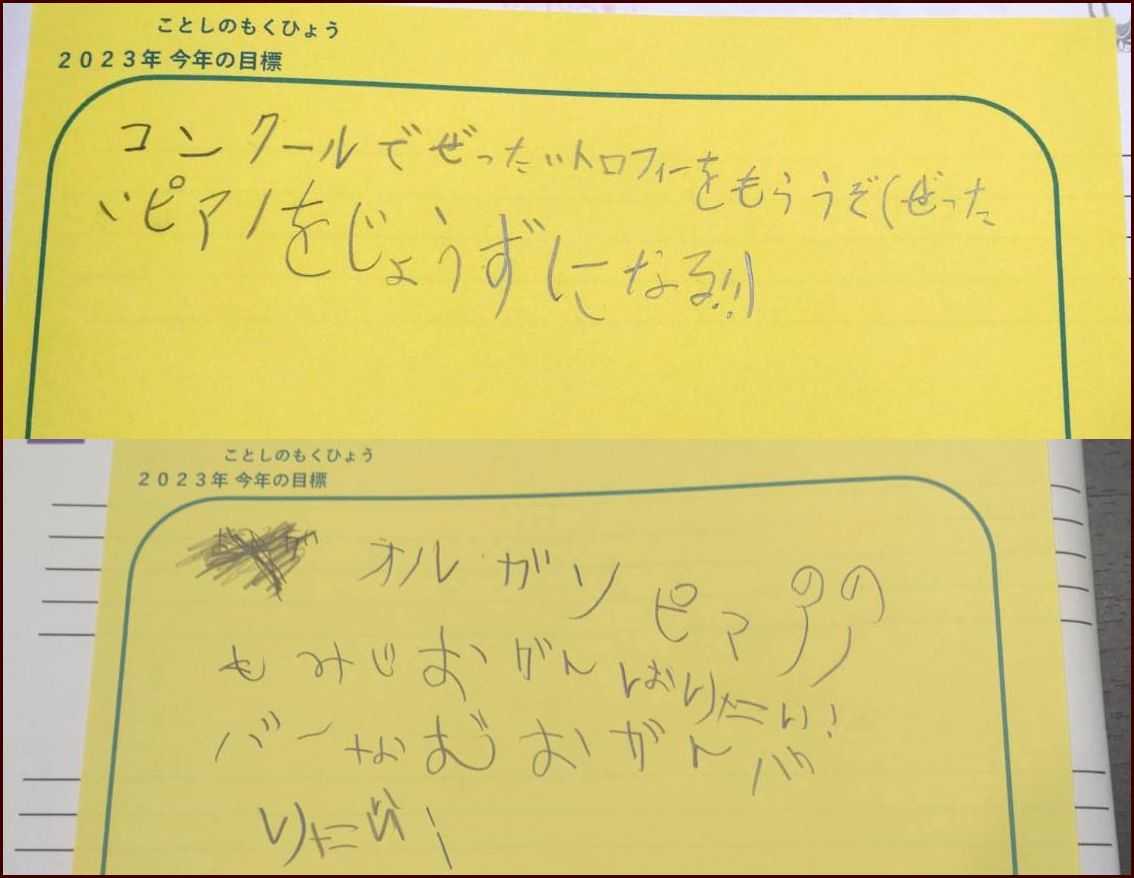 ことしのもくひょう
2023年 今年の目標
コンクールでぜったいトロフィーをもらうぞ(ぜった
いピアノをじょうずになる!!)
ことしのもくひょう
2023年 今年の目標
オルガン ピアノの
もみじおがんばりたい!
バーなむおがんば
りたい!